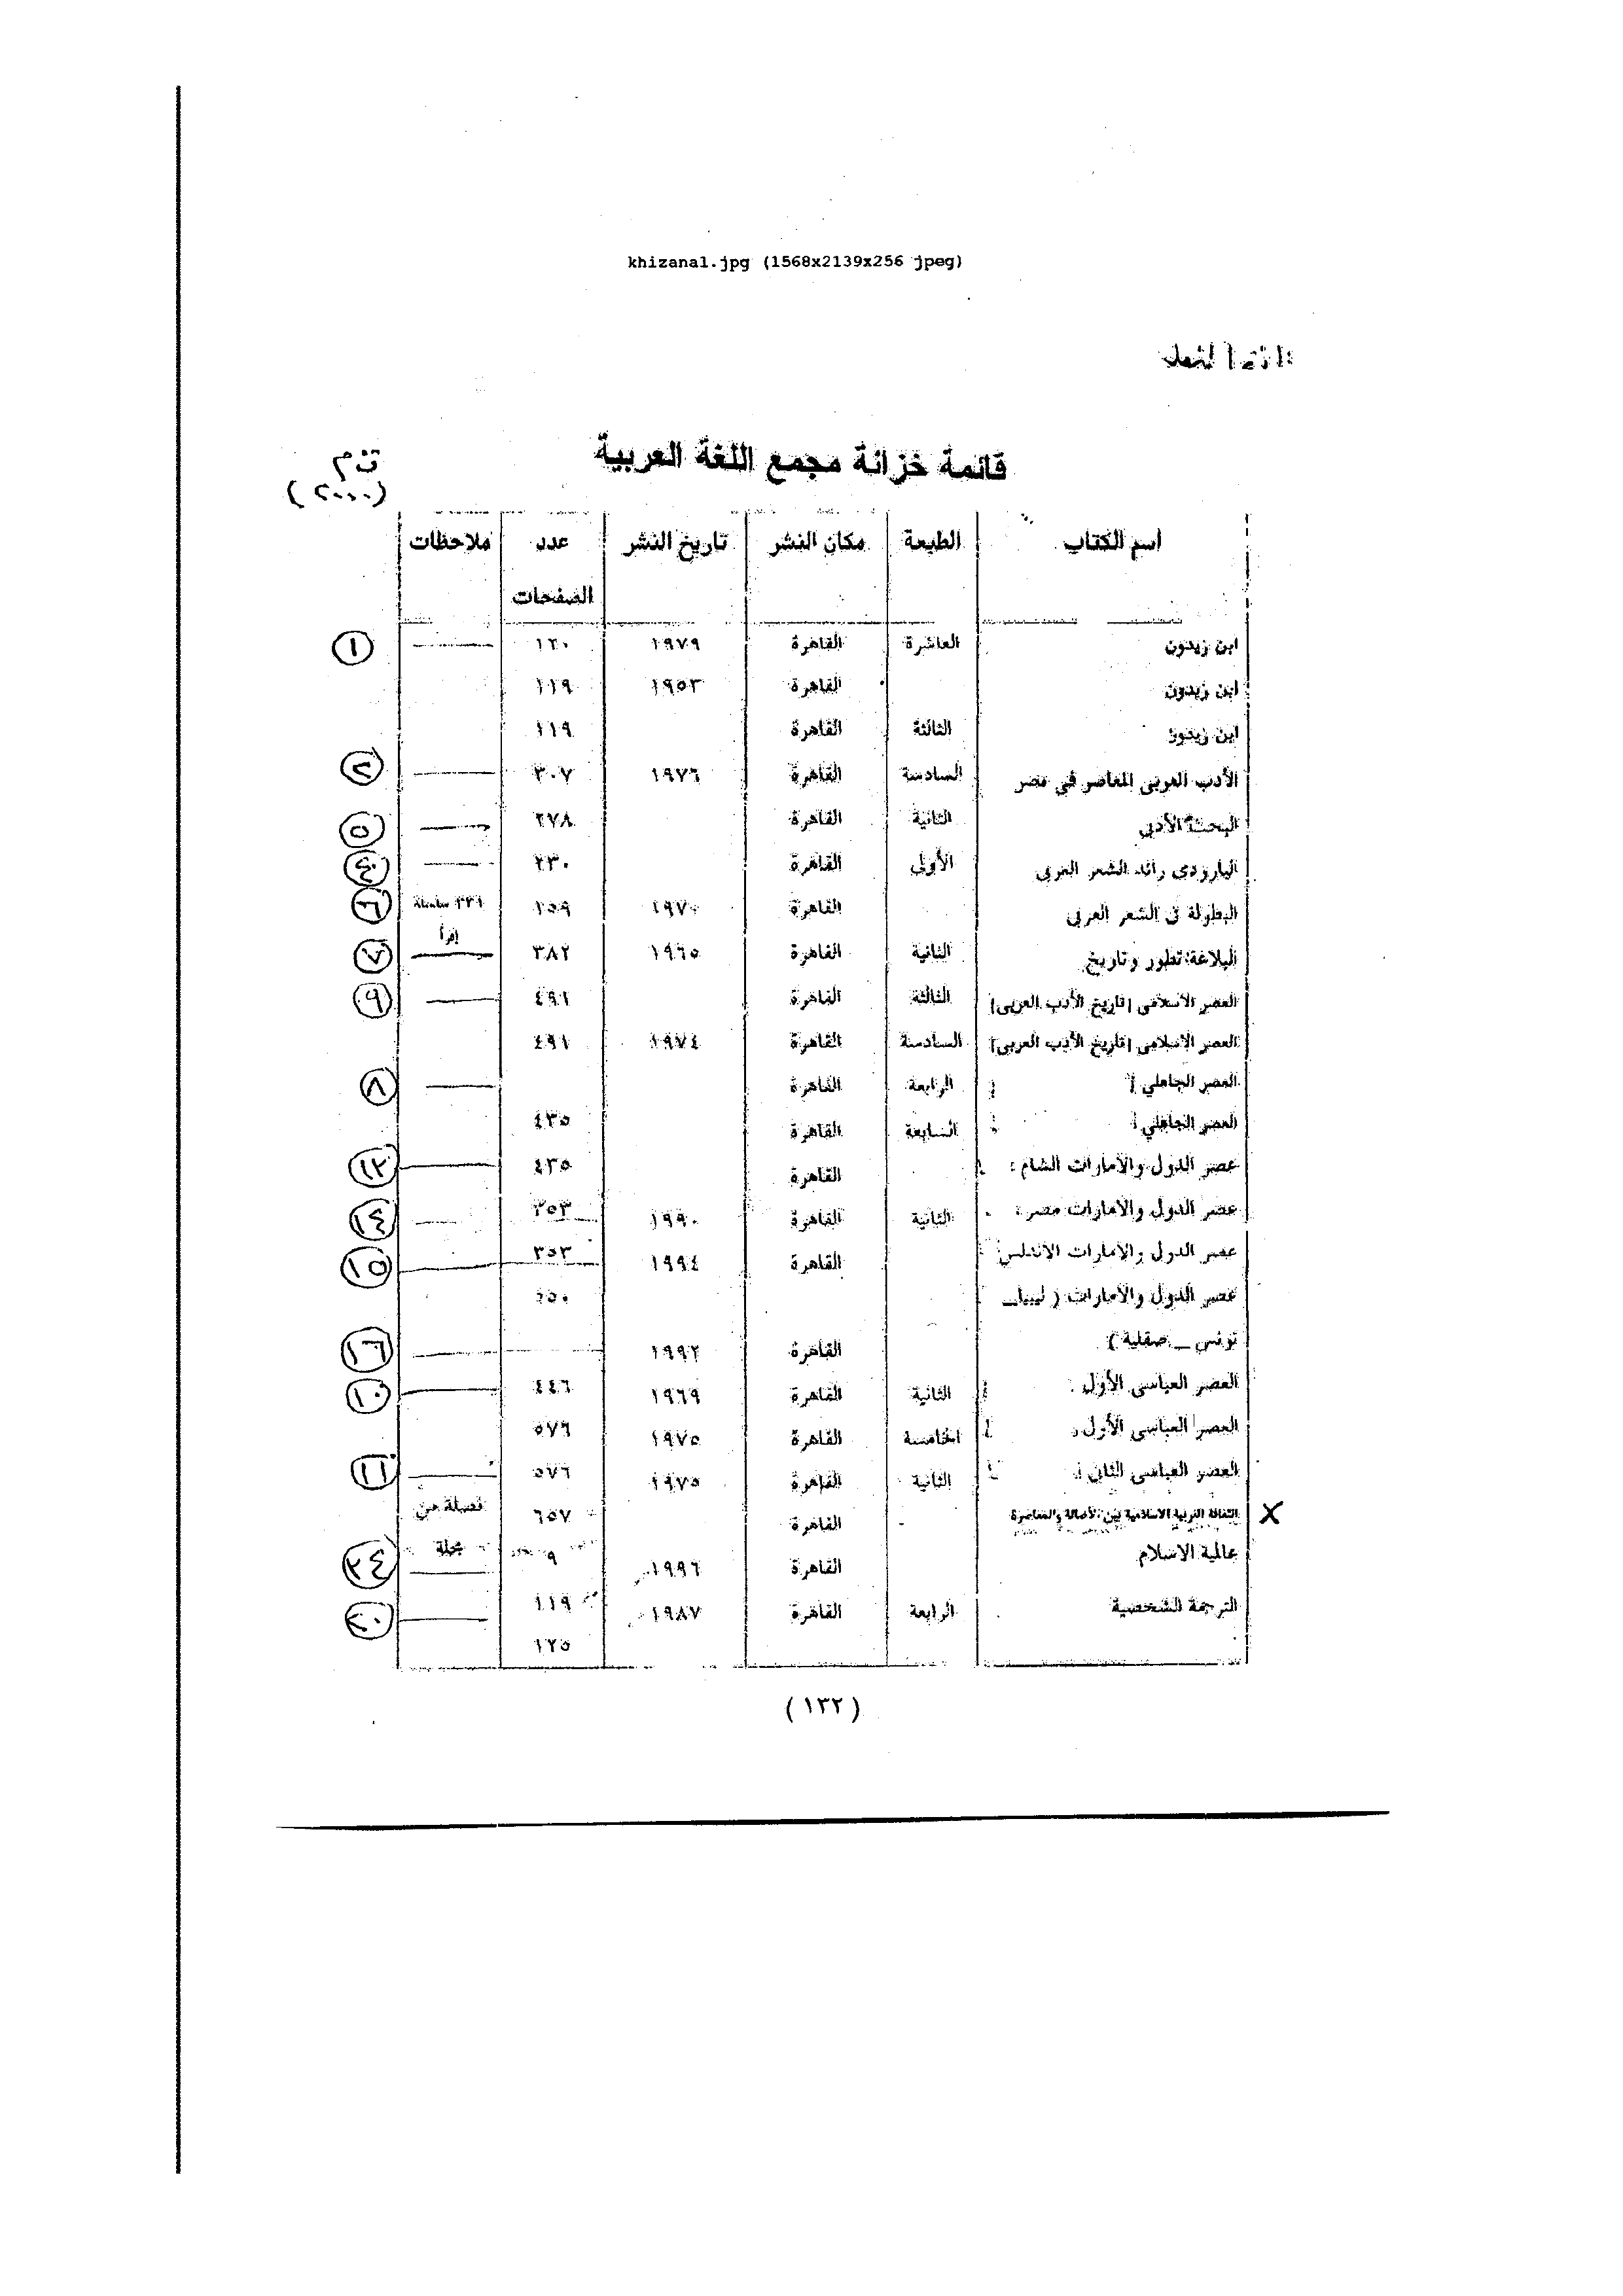 khizana1.jpg (1568x2139x256 jpeg)
قائمة خزانة مجمع اللغة العربية
(٢٠٠٠)
اسم الكتاب الطبعة مكان النشر تاريخ النشر عدد الصفحات ملاحظات
ابن زيدون العاشرة القاهرة ١٩٧٩ ١٢٠ ١
ابن زيدون القاهرة ١٩٥٣ ١١٩
ابن زيدون الثالثة القاهرة ١١٩
الأدب العربي المعاصر في مصر السادسة القاهرة ١٩٧٦ ٣٠٧ ٢
البحث الأدبي الثانية القاهرة ٢٧٨ ٥
البارودي رائد الشعر العربي الأولى القاهرة ٢٣٠ ٤
البطولة في الشعر العربي القاهرة ١٩٧٠ ١٥٩ سلسلة إقرأ ٦
البلاغة: تطور وتاريخ الثانية القاهرة ١٩٦٥ ٣٨٢ ٧
العصر الاسلامي (تاريخ الأدب العربي) الثالثة القاهرة ٤٩١ ٩
العصر الإسلامي (تاريخ الأدب العربي) السادسة القاهرة ١٩٧٤ ٤٩١
العصر الجاهلي الرابعة القاهرة ٨
العصر الجاهلي السابعة القاهرة ٤٣٥
عصر الدول والامارات الشام القاهرة ٤٣٥ ١٣
عصر الدول والامارات مصر الثانية القاهرة ١٩٩٠ ٣٥٣ ١٤
عصر الدول والامارات الاندلس القاهرة ١٩٩٤ ٣٥٣ ١٥
عصر الدول والامارات (ليبيا_
تونس _ صقلية) القاهرة ١٩٩٢ ١٦
العصر العباسي الأول الثانية القاهرة ١٩٦٩ ٤٤٦ ١٠
العصر العباسي الأول الخامسة القاهرة ١٩٧٥ ٥٧٦
العصر العباسي الثاني الثانية القاهرة ١٩٧٥ ٥٧٦ ١١
الثقافة العربية الاسلامية بين الأصالة والمعاصرة القاهرة ٦٥٧ فصلة من مجلة X
عالمية الاسلام القاهرة ١٩٩٦ ٢٤
الترجمة الشخصية الرابعة القاهرة ١٩٨٧ ١١٩ ٢٠
١٢٥
(١٣٢)